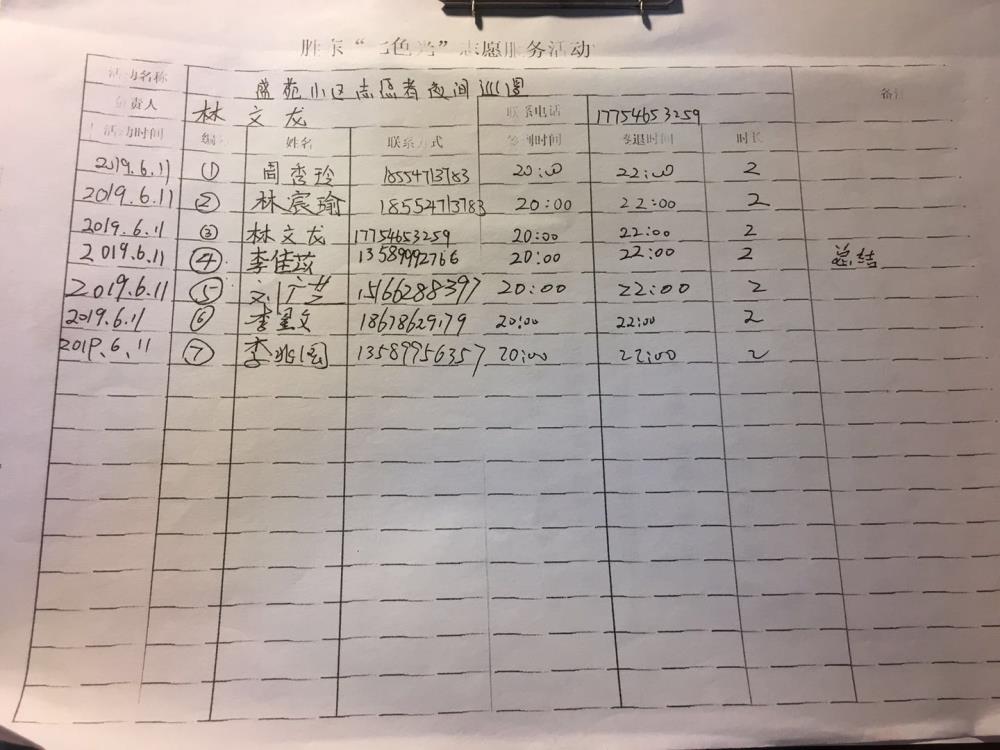 胜东“七色光”志愿服务活动
活动名称 盛苑小区志愿者夜间巡逻 备注
负责人 林文龙 联系电话 17754653259
活动时间 编号 姓名 联系方式 签到时间 签退时间 时长
2019.6.11 ① 周秀玲 18554713783 20:00 22:00 2
2019.6.11 ② 林宸瑜 18554713783 20:00 22:00 2
2019.6.11 ③ 林文龙 17754653259 20:00 22:00 2
2019.6.11 ④ 李佳苡 13589992766 20:00 22:00 2 总结
2019.6.11 ⑤ 15166288397 20:00 22:00 2
2019.6.11 ⑥ 李星文 18678629179 20:00 22:00 2
2019.6.11 ⑦ 李兆国 13589956357 20:00 22:00 2